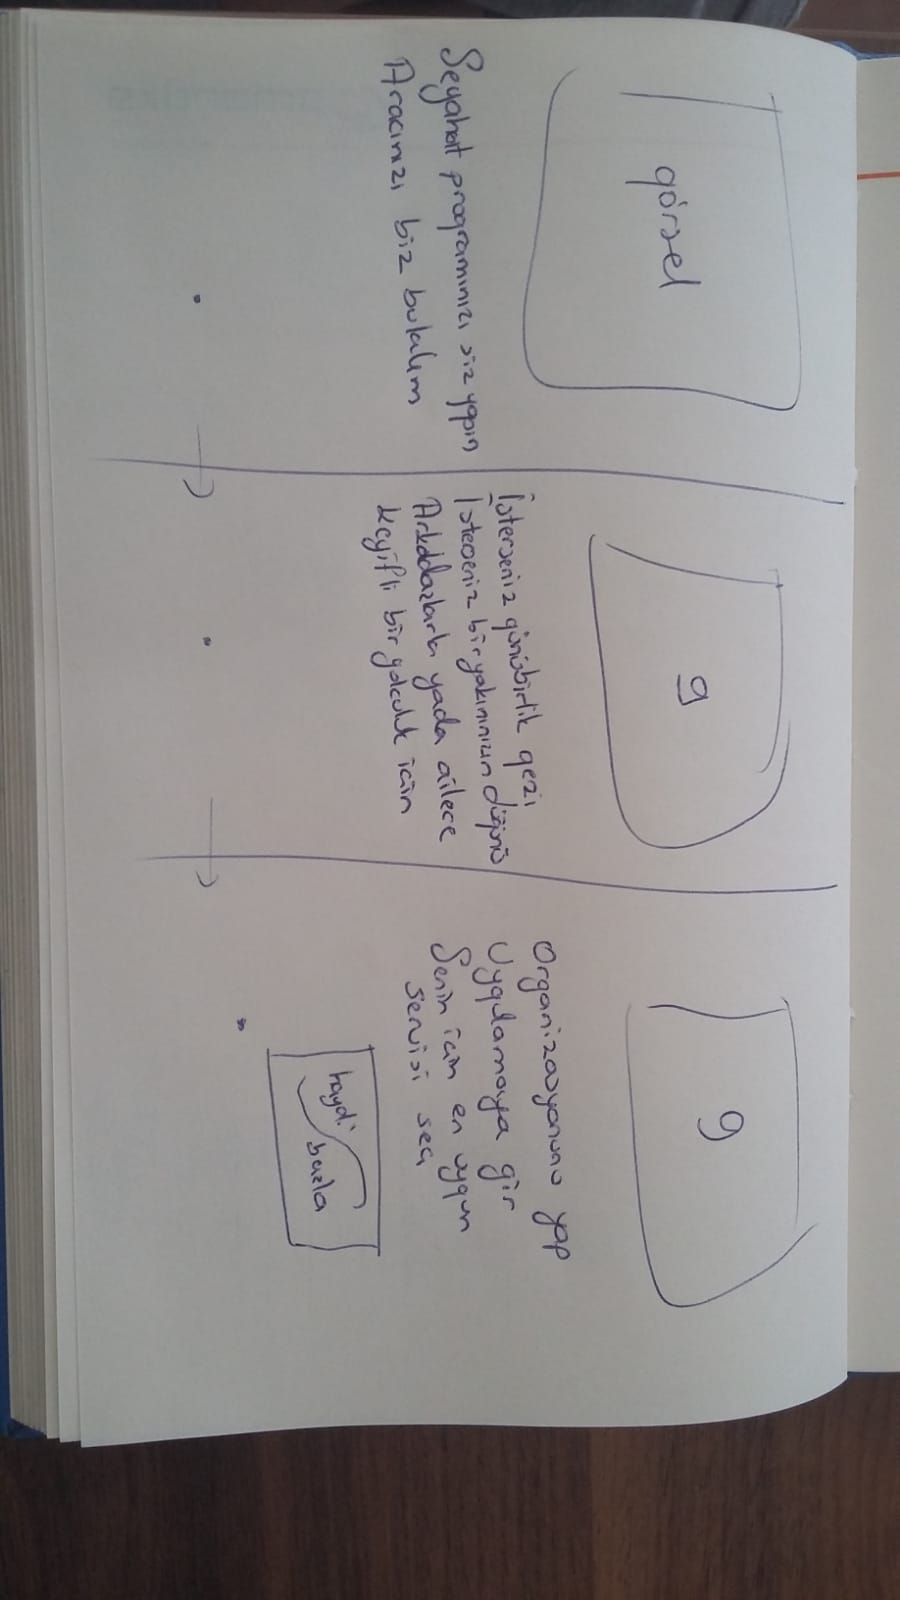 görsel
Seyahat programınızı siz yapın
Aracınızı biz bulalım
g
İsterseniz günübirlik gezi
İsterseniz bir yakınınızın düğünü
Arkadaşlarla yada ailece
keyifli bir yolculuk için
g
Organizasyonunu yap
Uygulamaya gir
Senin için en uygun
servisi seç
haydi
başla